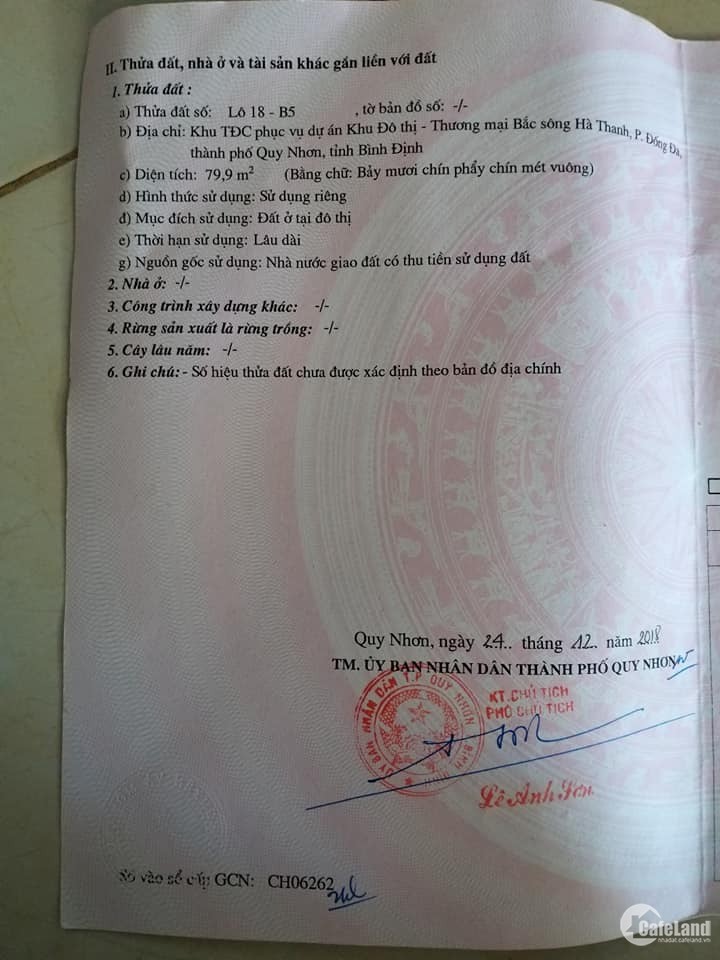 II. Thửa đất, nhà ở và tài sản khác gắn liền với đất
1. Thửa đất :
a) Thửa đất số: Lô 18 - B5 , tờ bản đồ số: -/-
b) Địa chỉ: Khu TĐC phục vụ dự án Khu Đô thị - Thương mại Bắc sông Hà Thanh, P. Đống Đa,
thành phố Quy Nhơn, tỉnh Bình Định
c) Diện tích: 79,9 m² (Bằng chữ: Bảy mươi chín phẩy chín mét vuông)
d) Hình thức sử dụng: Sử dụng riêng
đ) Mục đích sử dụng: Đất ở tại đô thị
e) Thời hạn sử dụng: Lâu dài
g) Nguồn gốc sử dụng: Nhà nước giao đất có thu tiền sử dụng đất
2. Nhà ở: -/-
3. Công trình xây dựng khác: -/-
4. Rừng sản xuất là rừng trồng: -/-
5. Cây lâu năm: -/-
6. Ghi chú: - Số hiệu thửa đất chưa được xác định theo bản đồ địa chính
Quy Nhơn, ngày 24.. tháng 12.. năm 2018
TM. ỦY BAN NHÂN DÂN THÀNH PHỐ QUY NHƠN
KT.CHỦ TỊCH
PHÓ CHỦ TỊCH
ỦY BAN NHÂN DÂN T.P QUY NHƠN
Lê Anh Sơn
Số vào sổ cấp GCN: CH06262
CafeLand
nhadat.cafeland.vn